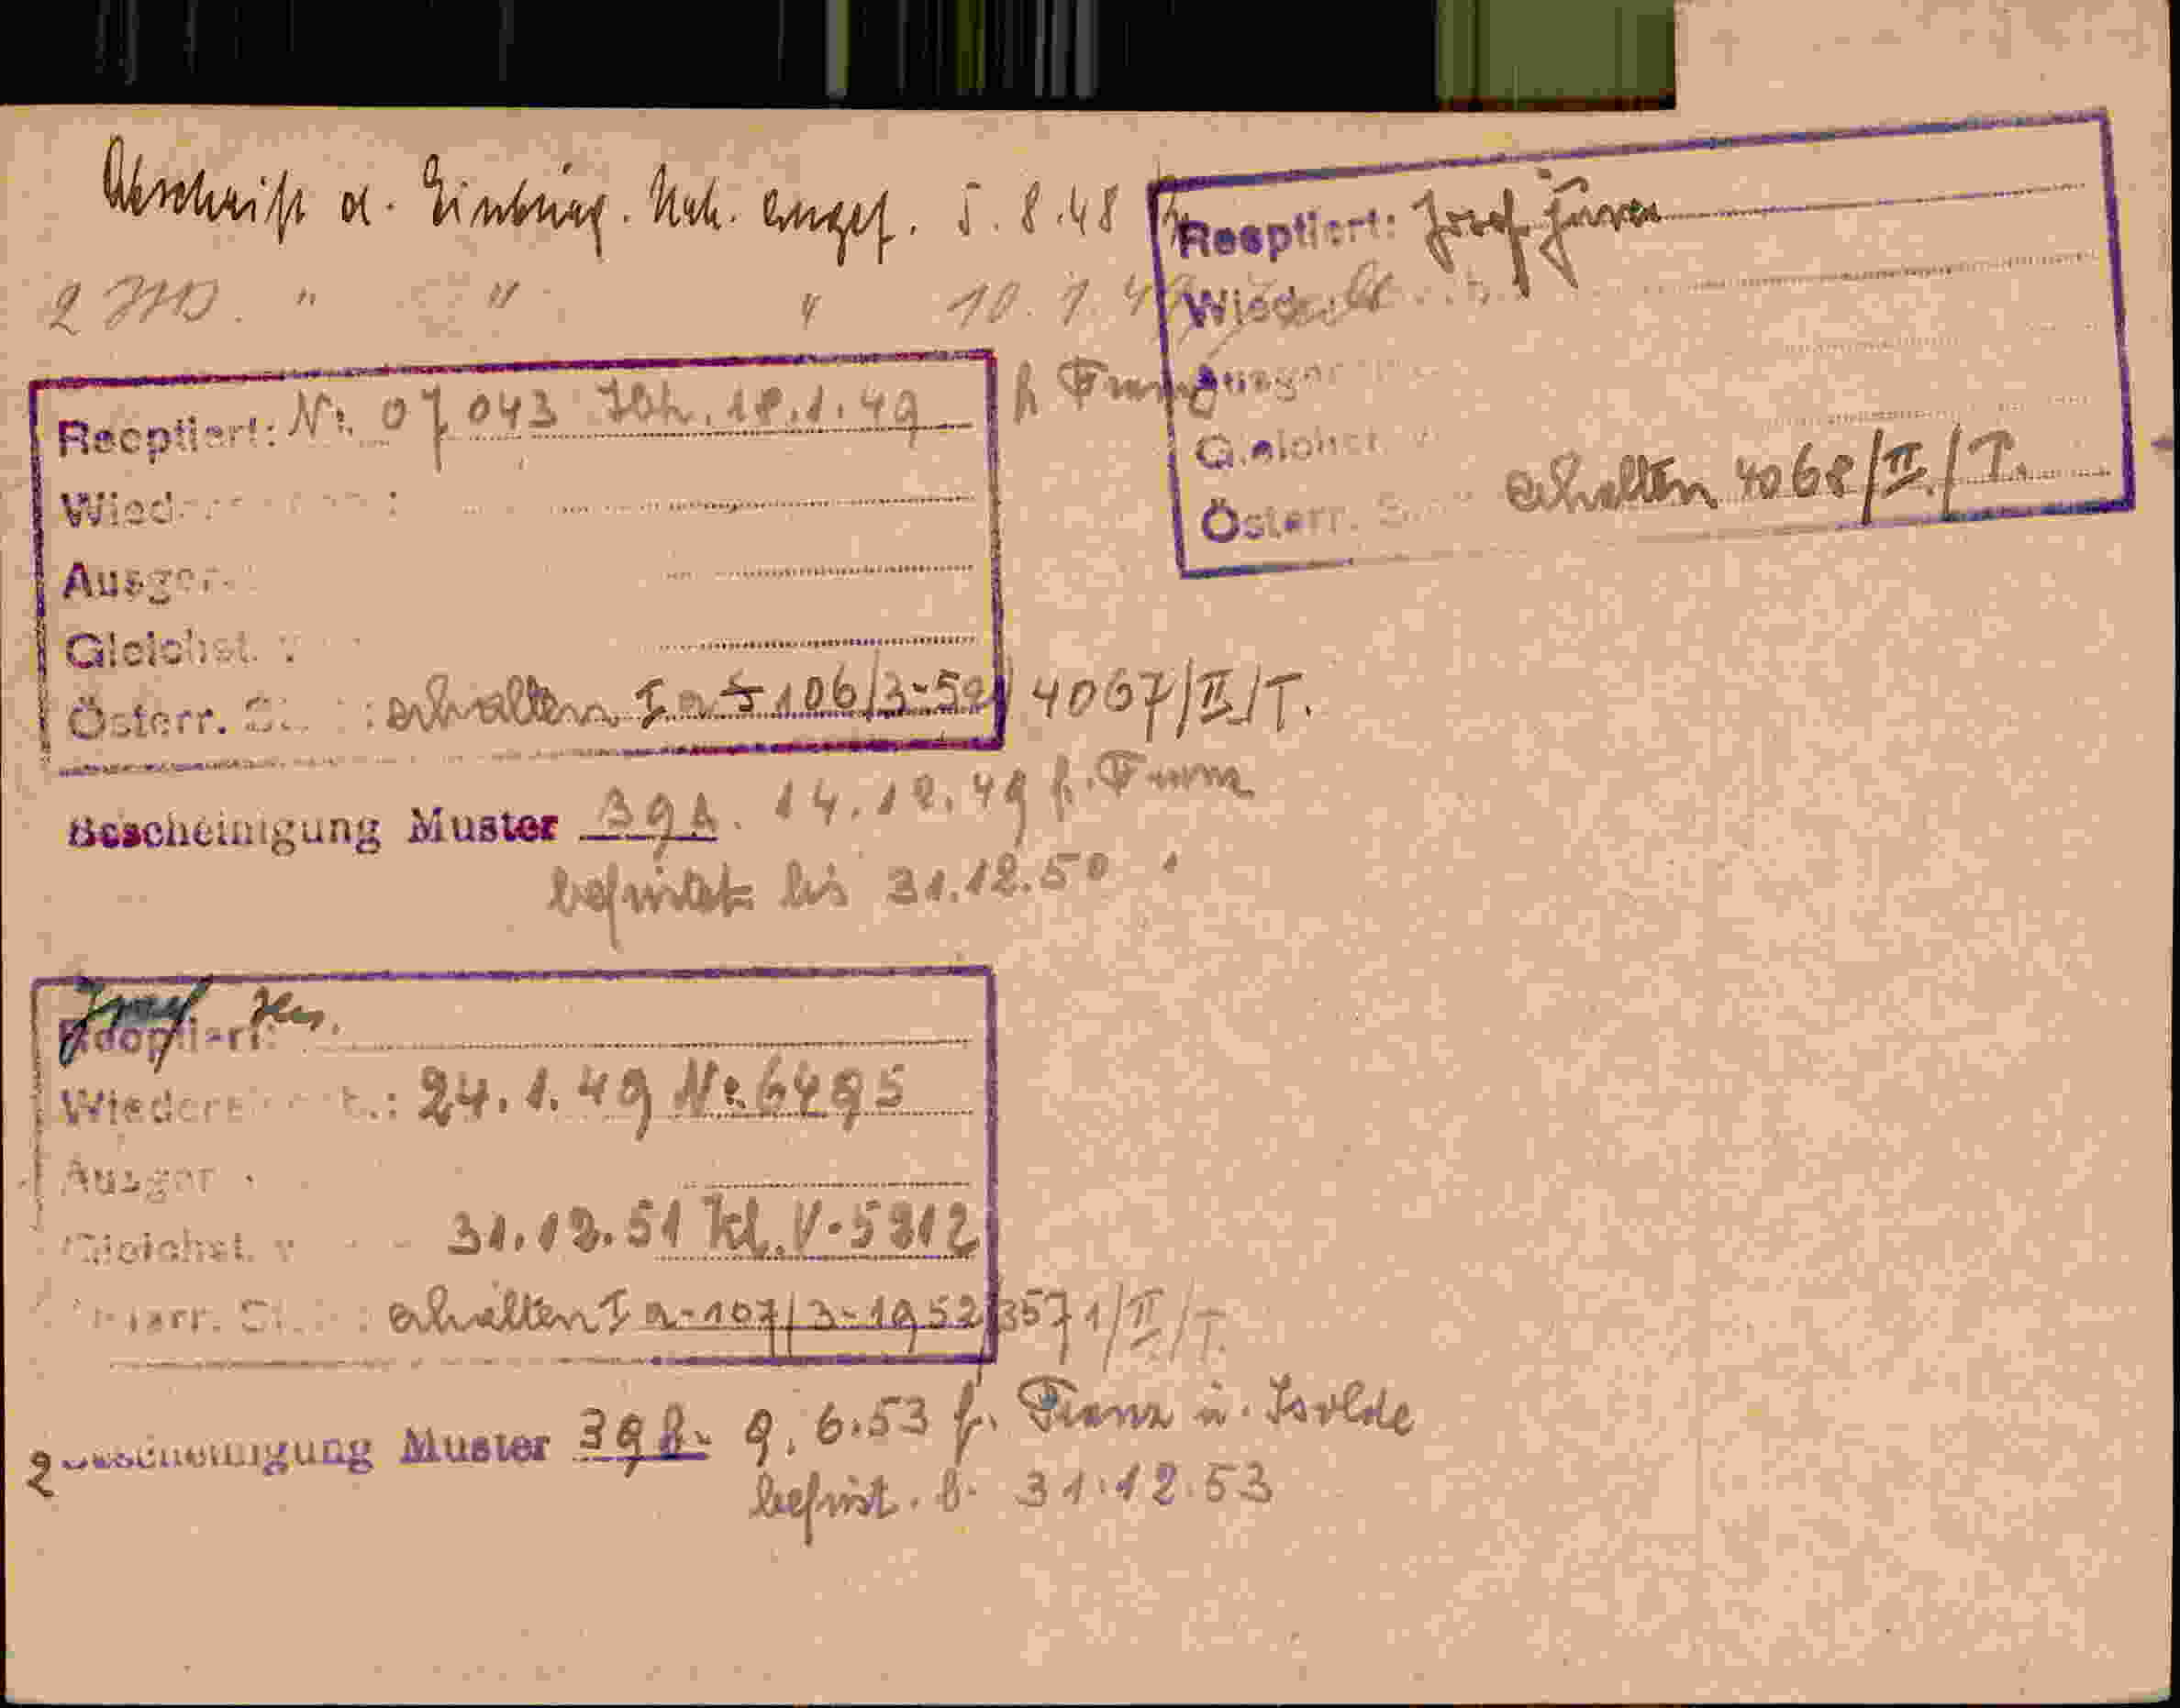 Abschrift d. Einbürg. Urk. ausgef. 5.8.48
2 " " " 10.1.49
Reoptiert: Josef jun.
Ausger
Gleichst.
Österr. erhalten 4068/II/T.
Reoptiert: Nr. 07043 18.1.49 f. Franz
Wieder
Ausger.
Gleichst. v
Österr. St. : erhalten I a 106/3-52/4067/II/T.
Bescheinigung Muster 39 14.12.49 f. Franz
befristet bis 31.12.50
Josef sen.
Reoptiert:
Wieder : 24.1.49 Nr. 6495
Ausger
Gleichst. v 31.12.51 Kl. V-5212
Österr. St. : erhalten I a-107/3-1952/3571/II/T.
2 Bescheinigung Muster 39 9.6.53 f. Franz u. Isolde
befrist. b. 31.12.53